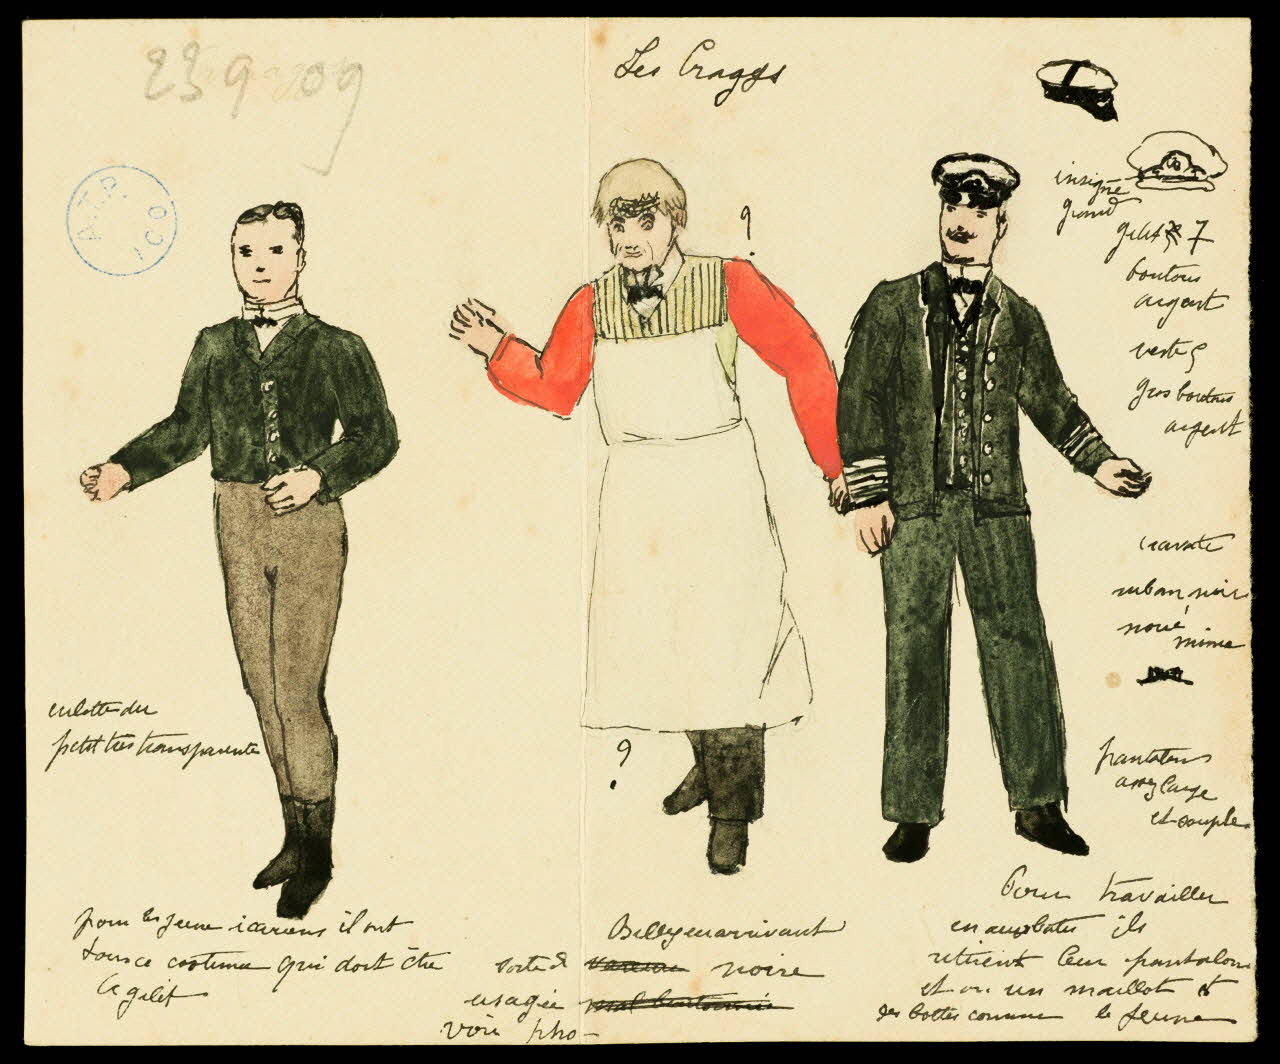 23 9 09
Les Craggs
A.T.P.
ICO
?
insigne
grand
gilet 7
boutons
argent
veste 5
gros boutons
argent
cravate
ruban noir
noué
mince
culotte du
petit très transparente
?
pantalons
assez large
et souple
pour les jeune icariens il ont
tous ce costume qui doit être
le gilet
Billy en arrivant
sorte de noire
usagée
voir pho-
Pour travailler
en acrobates ils
retirent leur pantalon
et on un maillot et
des bottes comme le jeune